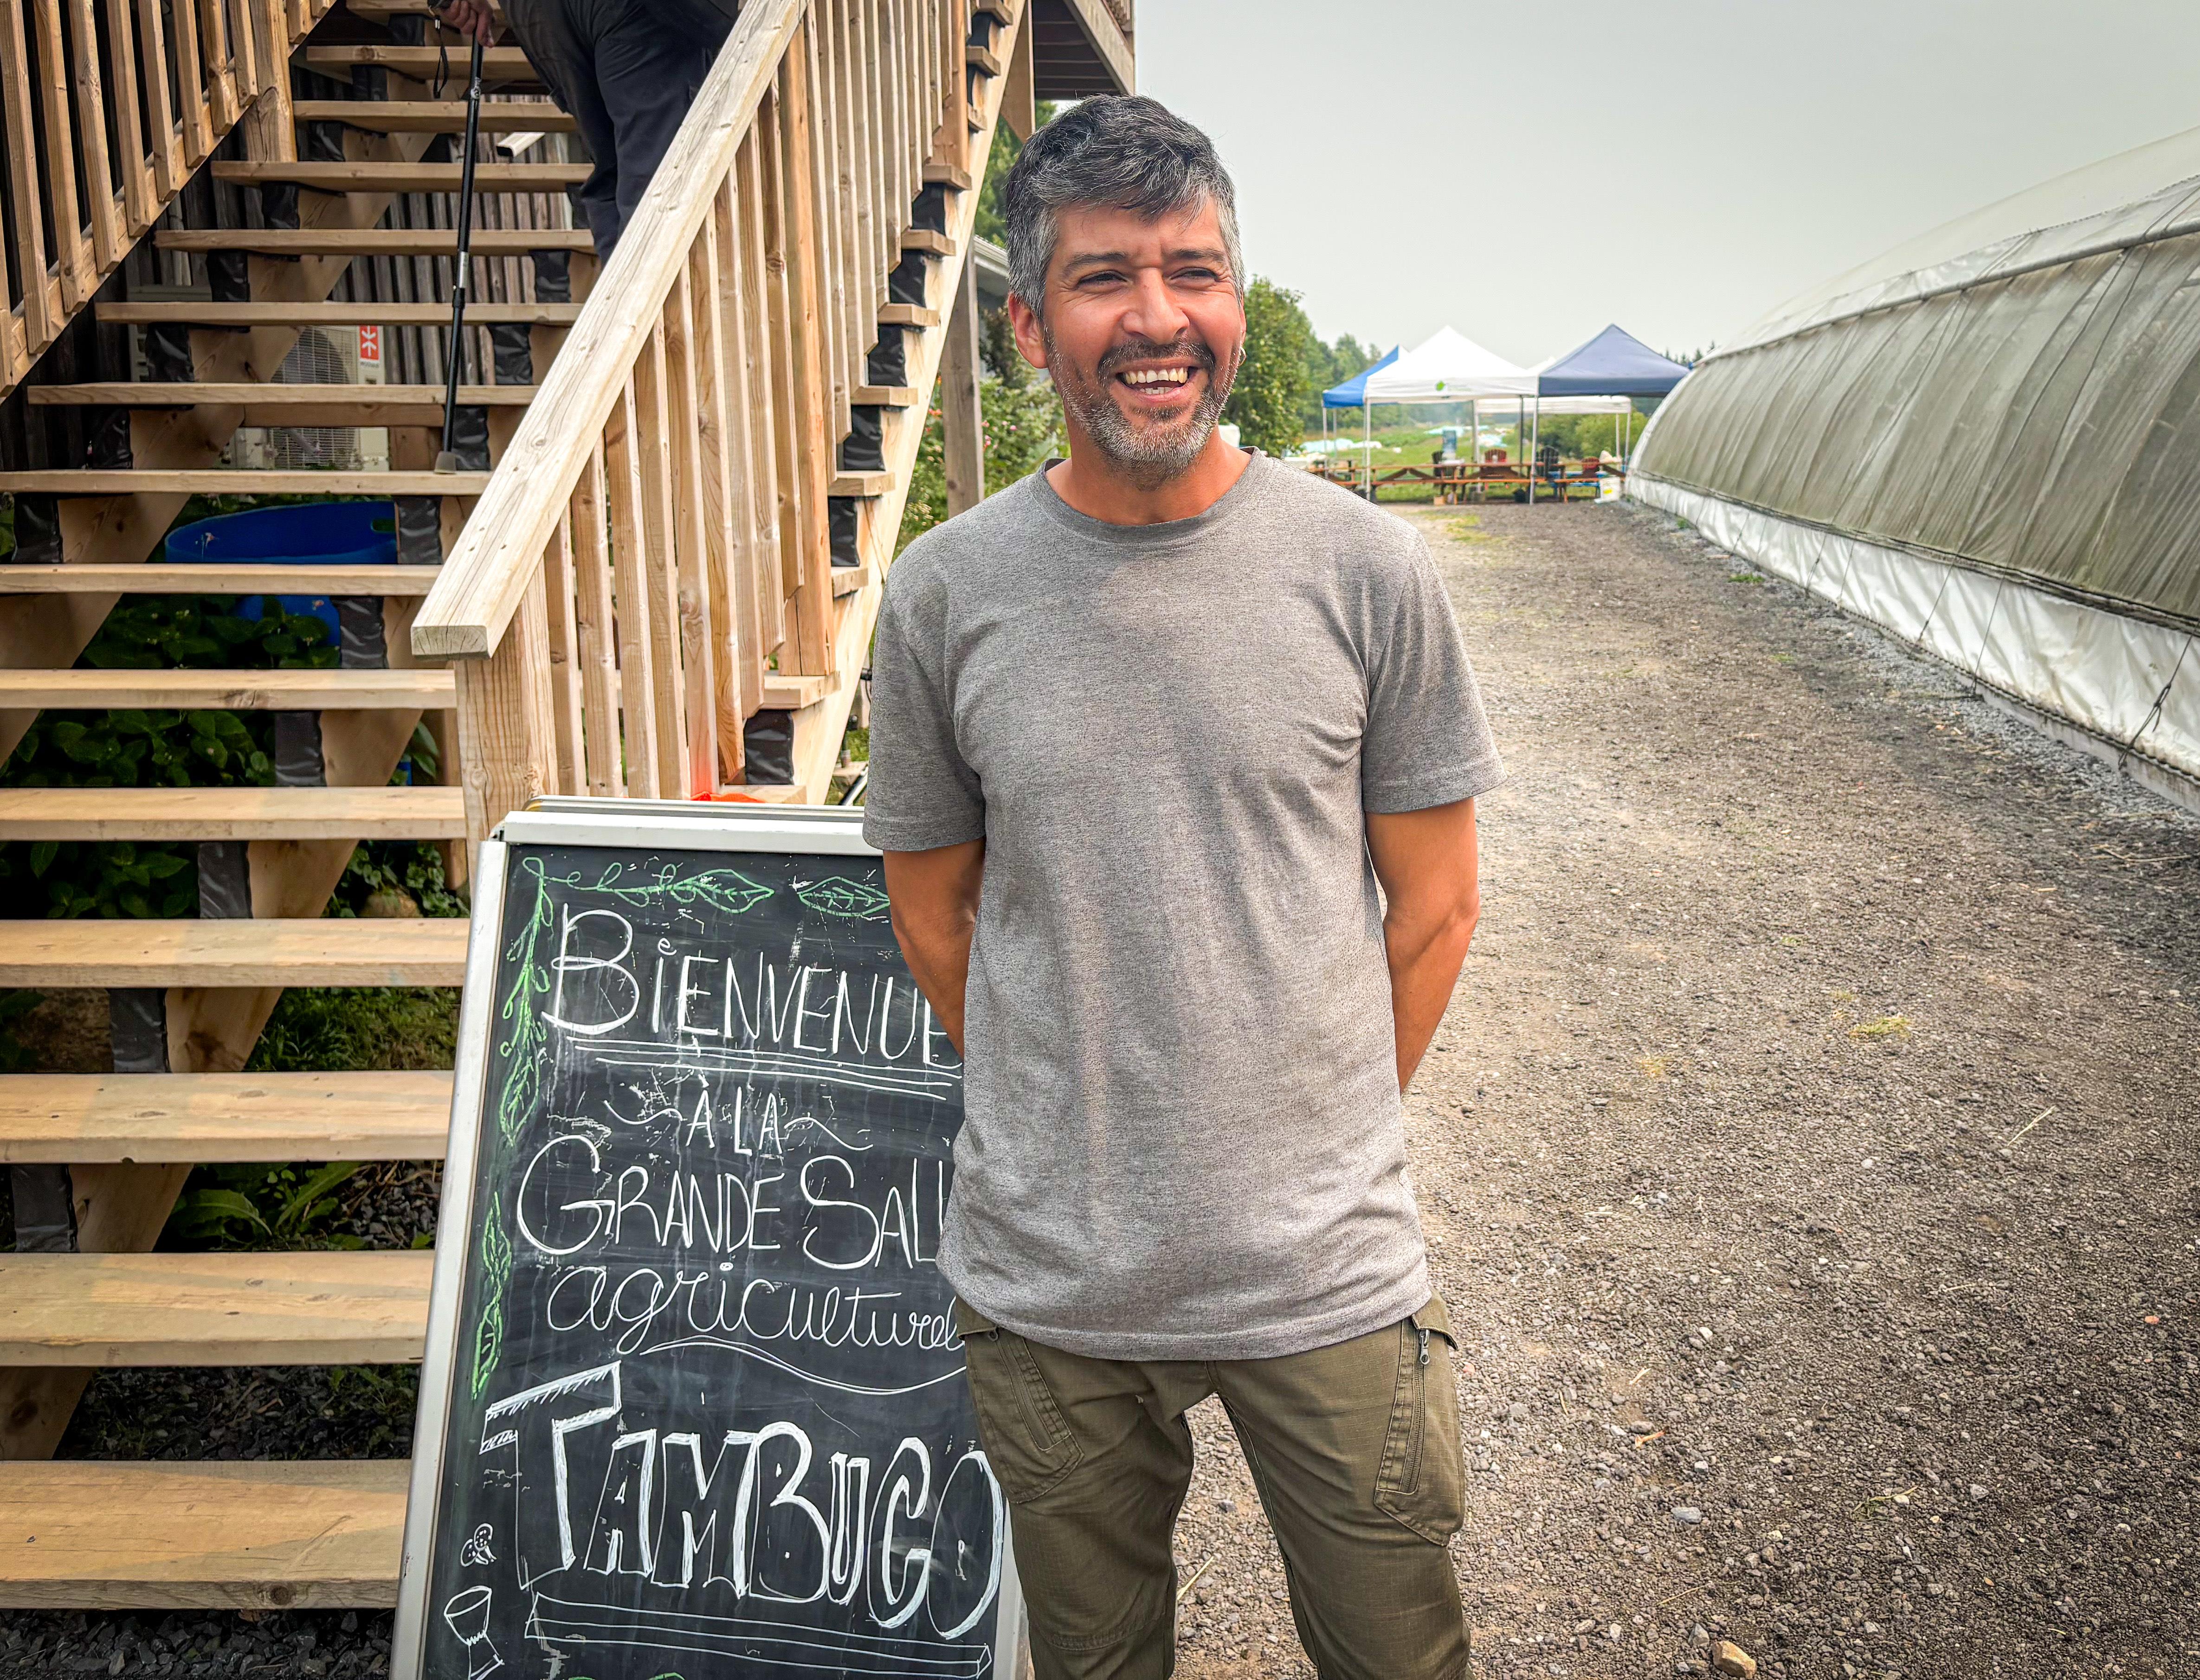 BIENVENUE
À LA
GRANDE SALL
agriculturel
TAMBUCO